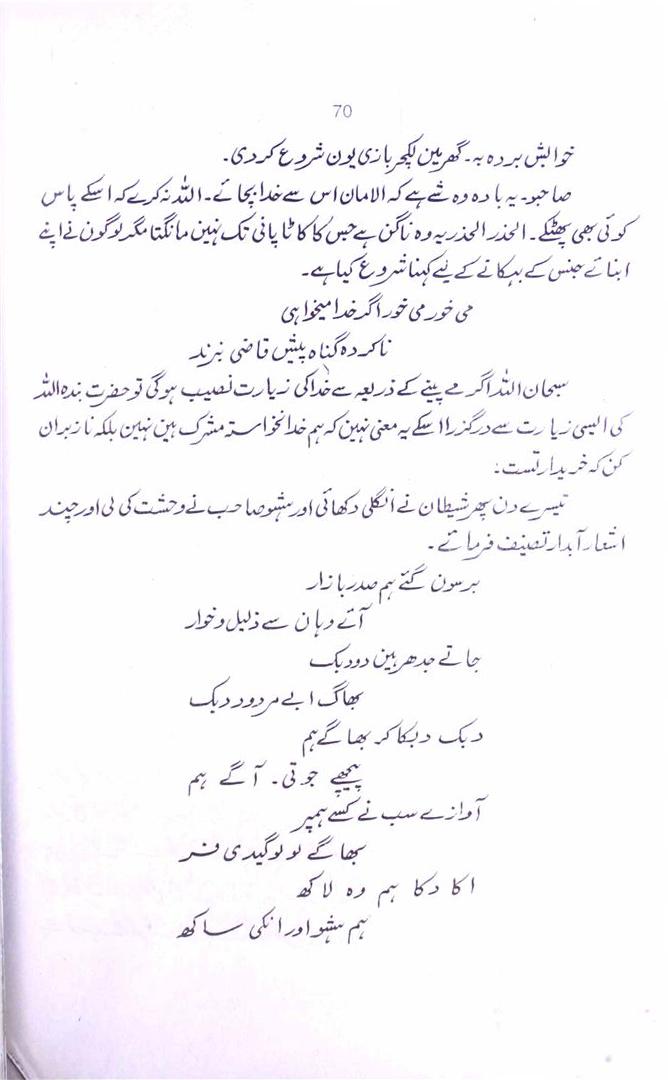 70
خوابش بردہ بہ۔ گھر مین لکچر بازی یون شروع کردی۔
صاحبو۔ یہ بادہ وہ شے ہے کہ الامان اس سے خدا بچائے۔ اللہ نہ کرے کہ اسکے پاس
کوئی بھی پھٹکے۔ الحذر الحذر یہ وہ ناگن ہے جس کا کاٹا پانی تک نہین مانگتا مگر لوگون نے اپنے
ابنائے جنس کے بہکانے کے لیے کہنا شروع کیا ہے۔
می خور می خور اگر خدا میخواہی
ناکردہ گناہ پیش قاضی نبرند
سبحان اللہ اگر مے پینے کے ذریعہ سے خدا کی زیارت نصیب ہوگی تو حضرت بندہ اللہ
کی ایسی زیارت سے درگزرا اسکے یہ معنی نہین کہ ہم خدانخواستہ مشرک ہین نہین بلکہ ناز بران
کن کہ خریدار تست۔
تیسرے دن پھر شیطان نے انگلی دکھائی اور ہشو صاحب نے وحشت کی لی اور چند
اشعار آبدار تصنیف فرمائے۔
برسون گئے ہم صدر بازار
آئے وہان سے ذلیل و خوار
جاتے جدھر ہین دودبک
بھاگ ابے مردود دبک
دبک دبکا کر بھاگے ہم
پیچھے جوتی۔ آگے ہم
آوازے سب نے کسے ہمپر
بھاگے تو تو گیدی فر
اکا دکا ہم وہ لاکھ
ہم ہشو اور انکی ساکھ